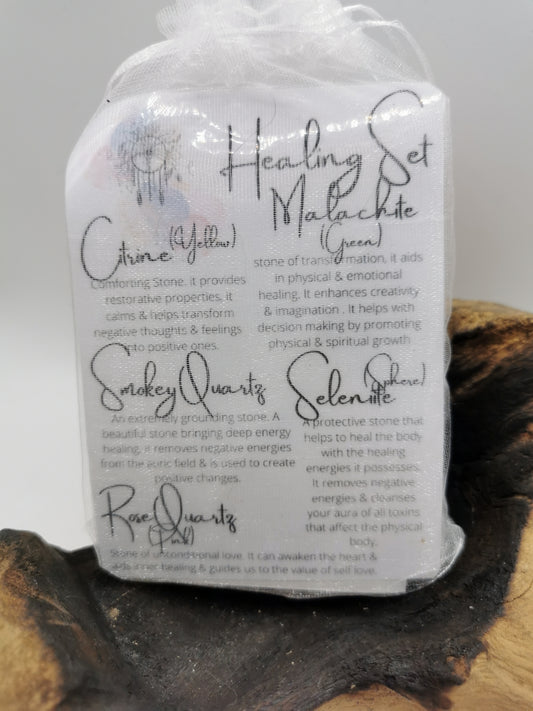 Healing Set
Citrine (Yellow)
Comforting Stone. it provides
restorative properties, it
calms & helps transform
negative thoughts & feelings
into positive ones.
Malachite
(Green)
stone of transformation, it aids
in physical & emotional
healing. It enhances creativity
& imagination . It helps with
decision making by promoting
physical & spiritual growth
Smokey Quartz
An extremely grounding stone. A
beautiful stone bringing deep energy
healing, it removes negative energies
from the auric field & is used to create
positive changes.
Seleniite (Sphere)
A protective stone that
helps to heal the body
with the healing
energies it possesses.
It removes negative
energies & cleanses
your aura of all toxins
that affect the physical
body.
Rose Quartz
(Pink)
Stone of unconditional love. It can awaken the heart &
aids inner healing & guides us to the value of self love.